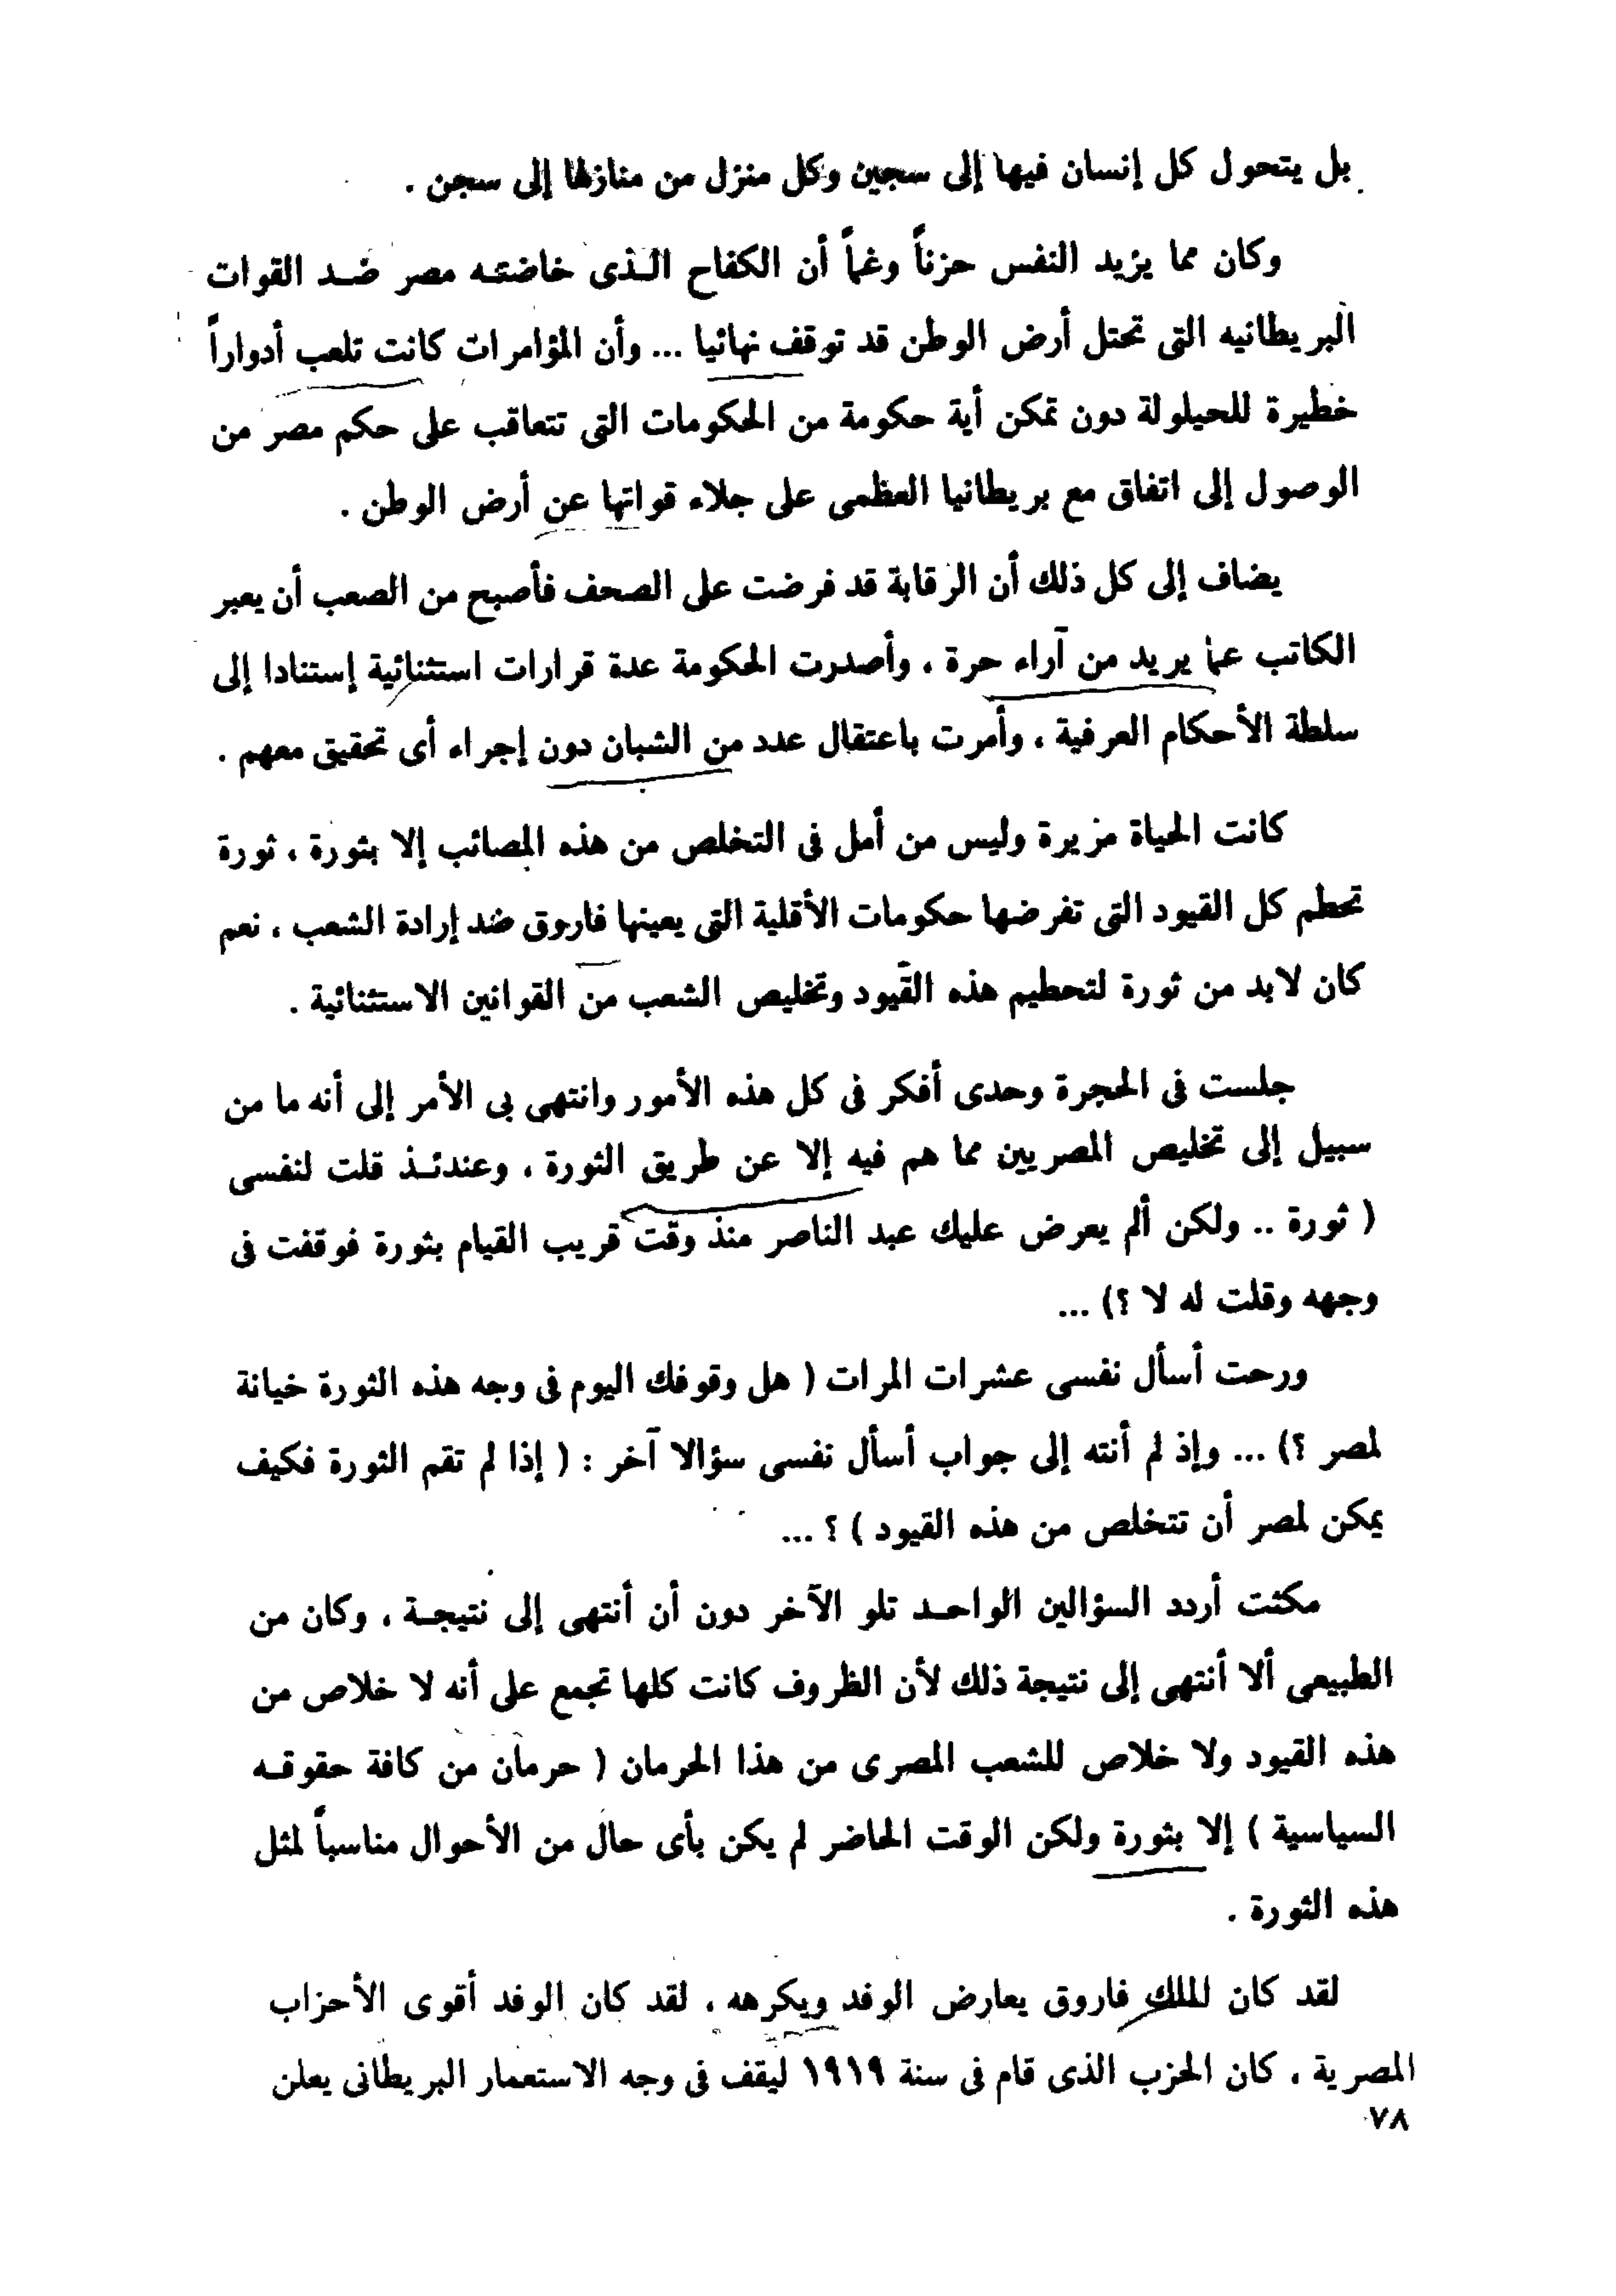 بل يتحول كل إنسان فيها إلى سجين وكل منزل من منازلها إلى سجن .
وكان مما يزيد النفس حزناً وغماً أن الكفاح الـذى خاضتـه مصر ضـد القوات
البريطانيه التى تحتل أرض الوطن قد توقف نهائيا ... وأن المؤامرات كانت تلعب أدواراً
خطيرة للحيلولة دون تمكن أية حكومة من الحكومات التى تتعاقب على حكم مصر من
الوصول إلى اتفاق مع بريطانيا العظمى على جلاء قواتها عن أرض الوطن .
يضاف إلى كل ذلك أن الرقابة قد فرضت على الصحف فأصبح من الصعب أن يعبر
الكاتب عما يريد من آراء حرة ، وأصدرت الحكومة عدة قرارات استثنائية إستنادا إلى
سلطة الأحكام العرفية ، وأمرت باعتقال عدد من الشبان دون إجراء أى تحقيق معهم .
كانت الحياة مريرة وليس من أمل فى التخلص من هذه المصائب إلا بثورة ، ثورة
تحطم كل القيود التى تفرضها حكومات الأقلية التى يعينها فاروق ضد إرادة الشعب ، نعم
كان لابد من ثورة لتحطيم هذه القيود وتخليص الشعب من القوانين الاستثنائية .
جلست فى الحجرة وحدى أفكر فى كل هذه الأمور وانتهى بى الأمر إلى أنه ما من
سبيل إلى تخليص المصريين مما هم فيه إلا عن طريق الثورة ، وعندئـذ قلت لنفسى
( ثورة .. ولكن ألم يعرض عليك عبد الناصر منذ وقت قريب القيام بثورة فوقفت فى
وجهه وقلت له لا ؟) ...
ورحت أسأل نفسى عشرات المرات ( هل وقوفك اليوم فى وجه هذه الثورة خيانة
لمصر ؟) ... وإذ لم أنته إلى جواب أسأل نفسى سؤالا آخر : ( إذا لم تقم الثورة فكيف
يمكن لمصر أن تتخلص من هذه القيود ) ؟ ...
مكثت أردد السؤالين الواحـد تلو الآخر دون أن أنتهى إلى نتيجـة ، وكان من
الطبيعى ألا أنتهى إلى نتيجة ذلك لأن الظروف كانت كلها تجمع على أنه لا خلاص من
هذه القيود ولا خلاص للشعب المصرى من هذا الحرمان ( حرمان من كافة حقوقـه
السياسية ) إلا بثورة ولكن الوقت الحاضر لم يكن بأى حال من الأحوال مناسباً لمثل
هذه الثورة .
لقد كان الملك فاروق يعارض الوفد ويكرهه ، لقد كان الوفد أقوى الأحزاب
المصرية ، كان الحزب الذى قام فى سنة ١٩١٩ ليقف فى وجه الاستعمار البريطانى يعلن
٧٨